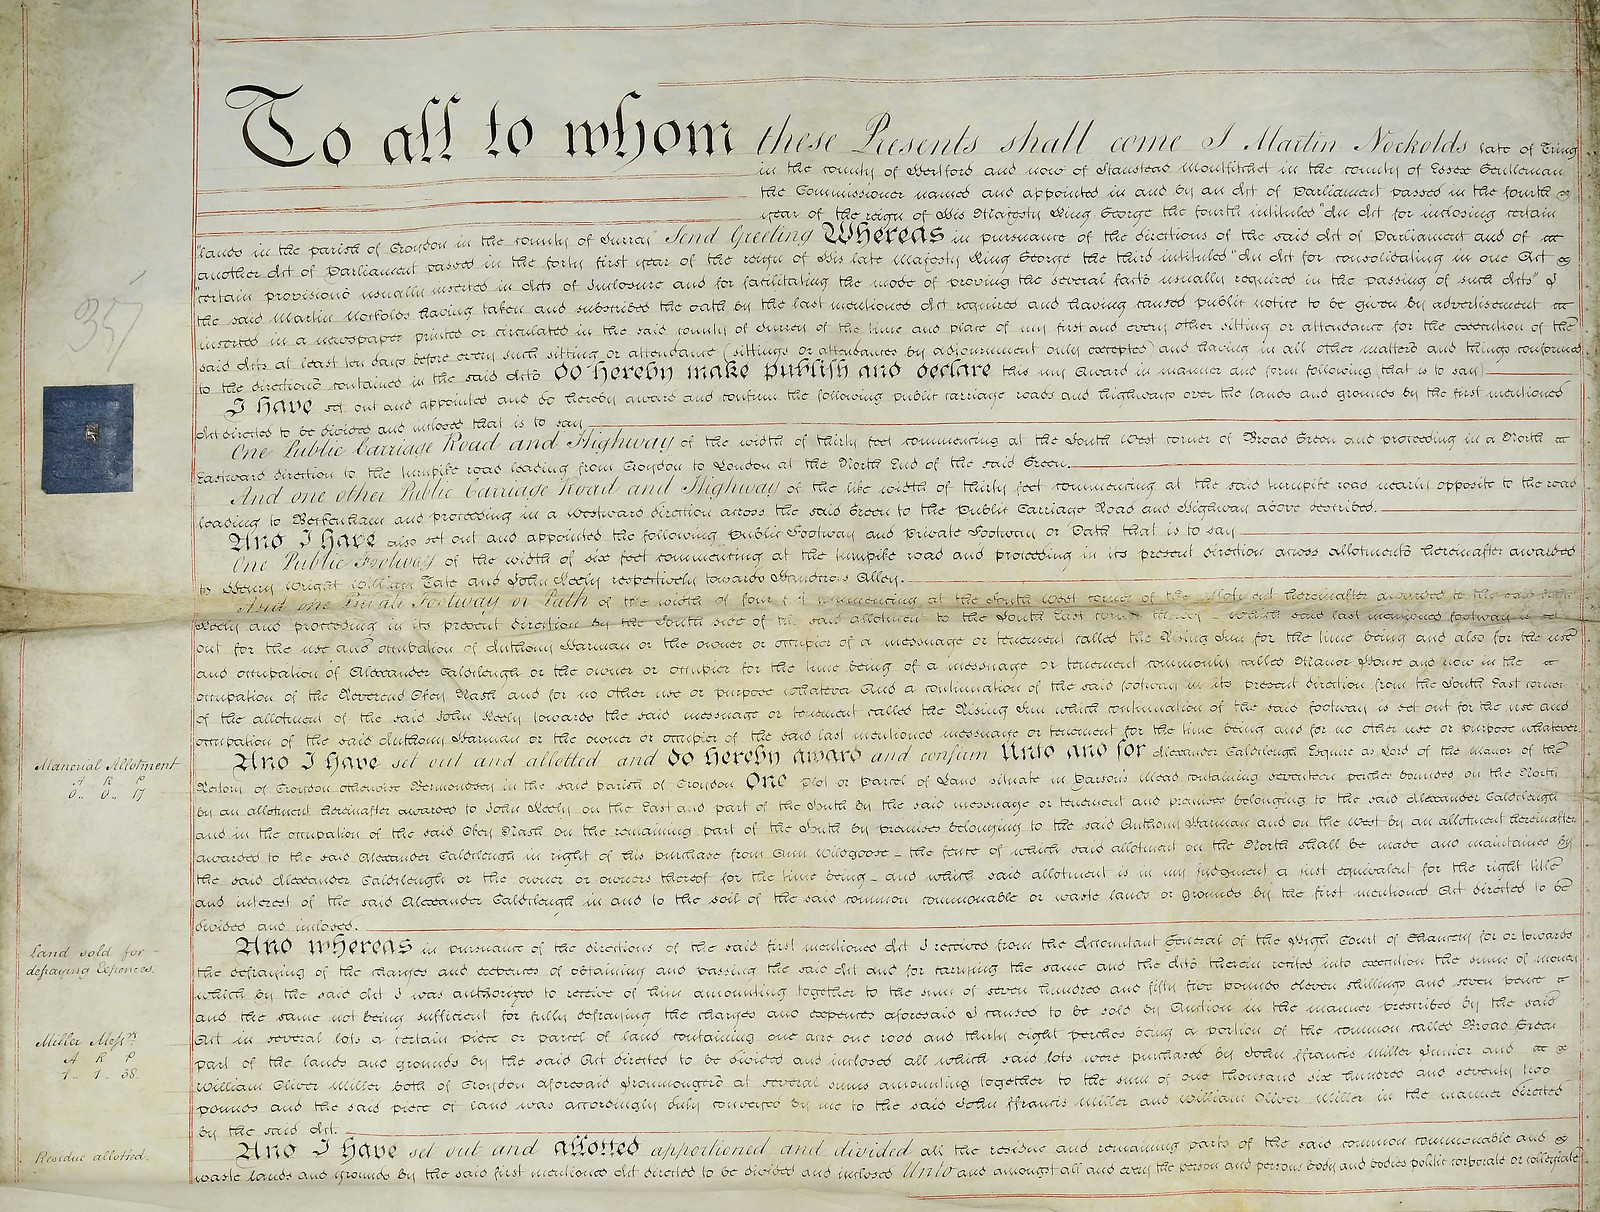 To all to whom these Presents shall come I Martin Nockolds late of Tring
in the county of Hertford and now of Stanstead Montfitchet in the county of Essex Gentleman
the Commissioner named and appointed in and by an Act of Parliament passed in the fourth
year of the reign of His Majesty King George the fourth intituled "An Act for inclosing certain
"lands in the parish of Croydon in the county of Surrey" Send Greeting Whereas in pursuance of the directions of the said Act of Parliament and of
another Act of Parliament passed in the forty first year of the reign of His late Majesty King George the third intituled "An Act for consolidating in one Act
"certain provisions usually inserted in Acts of Inclosure and for facilitating the mode of proving the several facts usually required in the passing of such Acts" I
the said Martin Nockolds having taken and subscribed the oath by the last mentioned Act required and having caused public notice to be given by advertisement
inserted in a newspaper printed or circulated in the said county of Surrey of the time and place of my first and every other sitting or attendance for the execution of the
said Acts at least ten days before every such sitting or attendance (sittings or attendances by adjournment only excepted) and having in all other matters and things conformed
to the directions contained in the said Acts do hereby make publish and declare this my Award in manner and form following (that is to say)
I have set out and appointed and do hereby award and confirm the following public carriage roads and highways over the lands and grounds by the first mentioned
Act directed to be divided and inclosed that is to say
One Public Carriage Road and Highway of the width of thirty feet commencing at the South West corner of Broad Green and proceeding in a North
Eastward direction to the turnpike road leading from Croydon to London at the North End of the said Green.
And one other Public Carriage Road and Highway of the like width of thirty feet commencing at the said turnpike road nearly opposite to the road
leading to Beckenham and proceeding in a Westward direction across the said Green to the Public Carriage Road and Highway above described.
And I have also set out and appointed the following Public Footway and Private Footway or Path that is to say
One Public Footway of the width of six feet commencing at the turnpike road and proceeding in its present direction across allotments hereinafter awarded
to Henry Wright William Tate and John Keely respectively towards Handcros Alley.
And one Private Footway or Path of the width of four feet commencing at the South West corner of the allotment hereinafter awarded to the said John
Keely and proceeding in its present direction by the South side of the said allotment to the South East corner thereof which said last mentioned footway is set
out for the use and occupation of Anthony Harman or the owner or occupier of a messuage or tenement called the Rising Sun for the time being and also for the use
and occupation of Alexander Caldcleugh or the owner or occupier for the time being of a messuage or tenement commonly called Manor House and now in the
occupation of the Reverend Okey Nash and for no other use or purpose whatever And a continuation of the said footway in its present direction from the South East corner
of the allotment of the said John Keely towards the said messuage or tenement called the Rising Sun which continuation of the said footway is set out for the use and
occupation of the said Anthony Harman or the owner or occupier of the said last mentioned messuage or tenement for the time being and for no other use or purpose whatever
And I have set out and allotted and do hereby award and confirm Unto and for Alexander Caldcleugh Esquire as Lord of the Manor of the
Manorial Allotment
A R P
0.. 0.. 17
Rectory of Croydon otherwise Bermondsey in the said parish of Croydon One plot or Parcel of Land situate in Parson's Mead containing seventeen perches bounded on the North
by an allotment hereinafter awarded to John Keely on the East and part of the South by the said messuage or tenement and premises belonging to the said Alexander Caldcleugh
and in the occupation of the said Okey Nash on the remaining part of the South by premises belonging to the said Anthony Harman and on the West by an allotment hereinafter
awarded to the said Alexander Caldcleugh in right of his purchase from Gum Wildgoose - the fence of which said allotment on the North shall be made and maintained by
the said Alexander Caldcleugh or the owner or owners thereof for the time being - and which said allotment is in my judgment a just equivalent for the right title
and interest of the said Alexander Caldcleugh in and to the soil of the said common commonable or waste lands or grounds by the first mentioned Act directed to be
divided and inclosed.
And whereas in pursuance of the directions of the said first mentioned Act I received from the Accountant General of the High Court of Chancery for or towards
Land sold for
defraying Expences.
the defraying of the charges and expences of obtaining and passing the said Act and for carrying the same and the Acts therein recited into execution the sums of money
which by the said Act I was authorized to receive of him amounting together to the sum of seven hundred and fifty five pounds eleven shillings and seven pence
and the same not being sufficient for fully defraying the charges and expences aforesaid I caused to be sold by Auction in the manner prescribed by the said
Act in several lots a certain piece or parcel of land containing one acre one rood and thirty eight perches being a portion of the common called Broad Green
Miller Messrs
A R P
1.. 1.. 38.
part of the lands and grounds by the said Act directed to be divided and inclosed all which said lots were purchased by John ffrancis Miller Junior and
William Oliver Miller both of Croydon aforesaid Ironmongers at several sums amounting together to the sum of one thousand six hundred and seventy two
pounds and the said piece of land was accordingly duly conveyed by me to the said John ffrancis Miller and William Oliver Miller in the manner directed
by the said Act.
And I have set out and allotted apportioned and divided all the residue and remaining parts of the said common commonable and
Residue allotted.
waste lands and grounds by the said first mentioned Act directed to be divided and inclosed Unto and amongst all and every the person and persons body and bodies politic corporate or collegiate
357